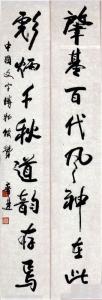 肇基百代风神在此
彪炳千秋道韵存焉
中国文字博物馆赞